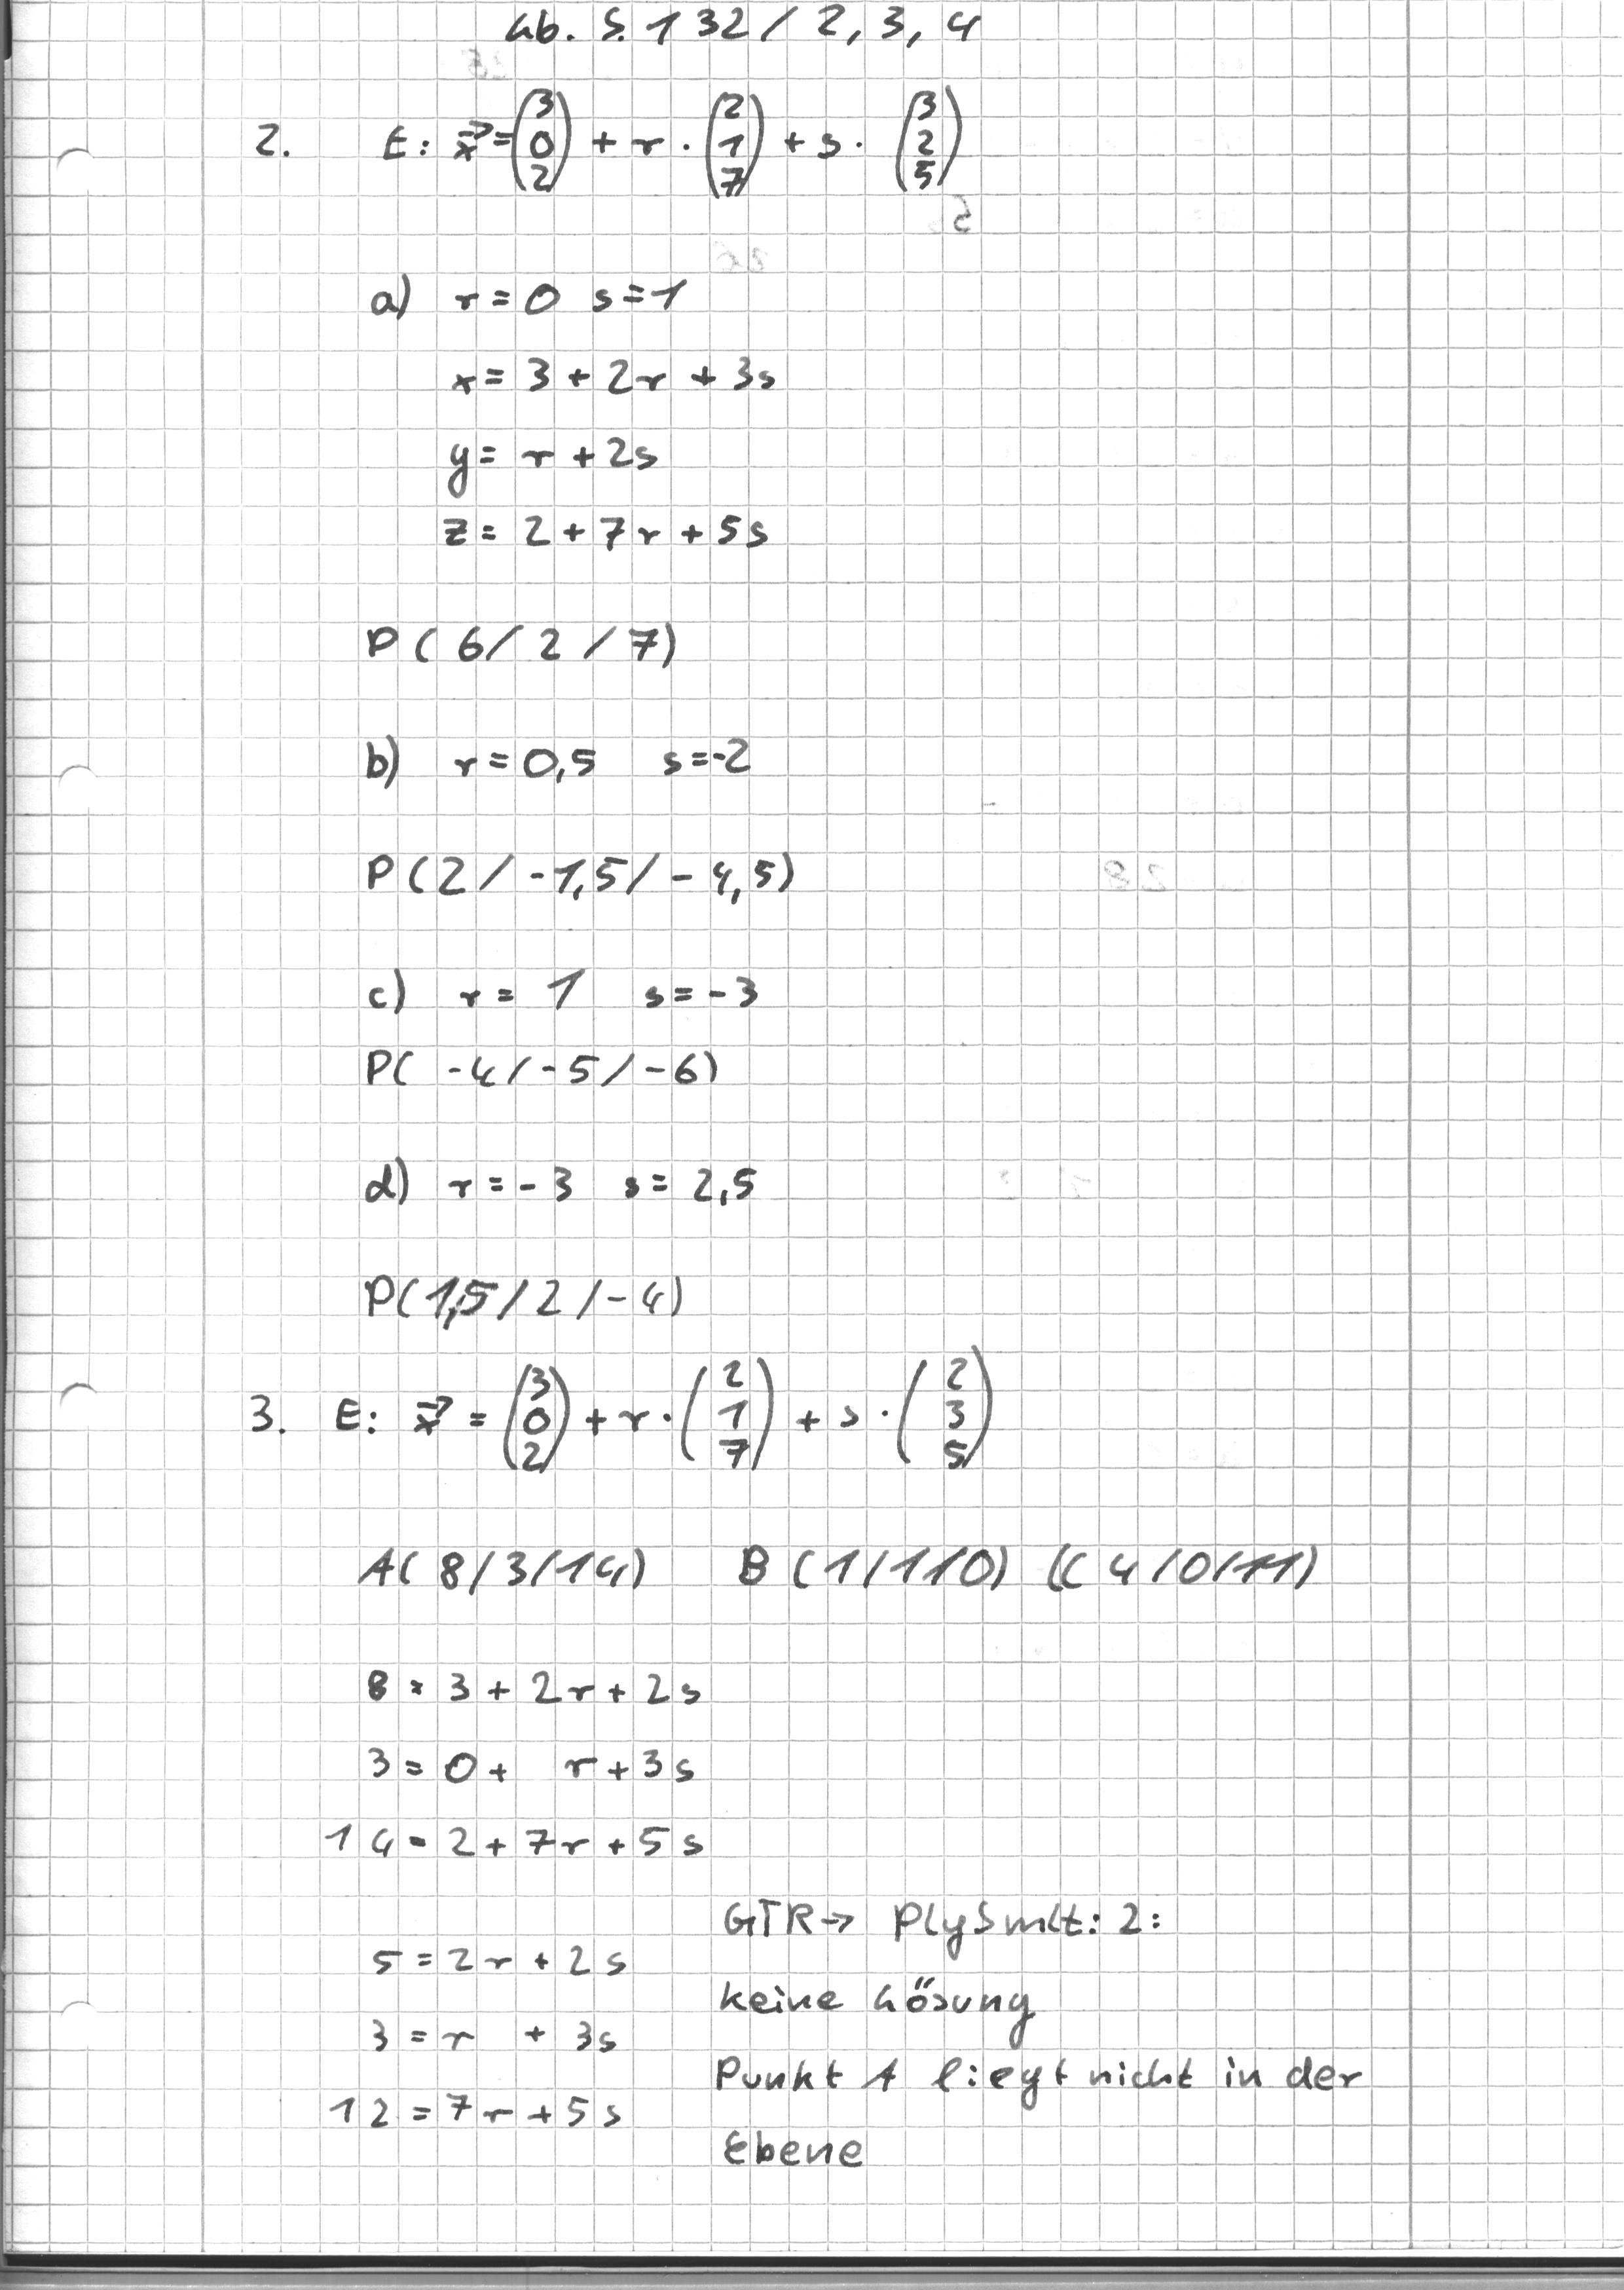 Lb. S. 132 / 2, 3, 4
2. E: x⃗ = (3 0 2) + r · (2 1 7) + s · (3 2 5)
a) r = 0 s = 1
x = 3 + 2r + 3s
y = r + 2s
z = 2 + 7r + 5s
P ( 6 / 2 / 7)
b) r = 0,5 s = -2
P ( 2 / -1,5 / - 4,5)
c) r = 1 s = - 3
P( -4 / -5 / -6)
d) r = - 3 s = 2,5
P( 1,5 / 2 / - 4)
3. E: x⃗ = (3 0 2) + r · (2 1 7) + s · (2 3 5)
A( 8 / 3 / 14) B ( 1 / 1 / 0) C( 4 / 0 / 11)
8 = 3 + 2r + 2s
3 = 0 + r + 3s
14 = 2 + 7r + 5s
GTR → PlySmlt: 2:
5 = 2r + 2s
keine Lösung
3 = r + 3s
Punkt A liegt nicht in der
12 = 7r + 5s
Ebene